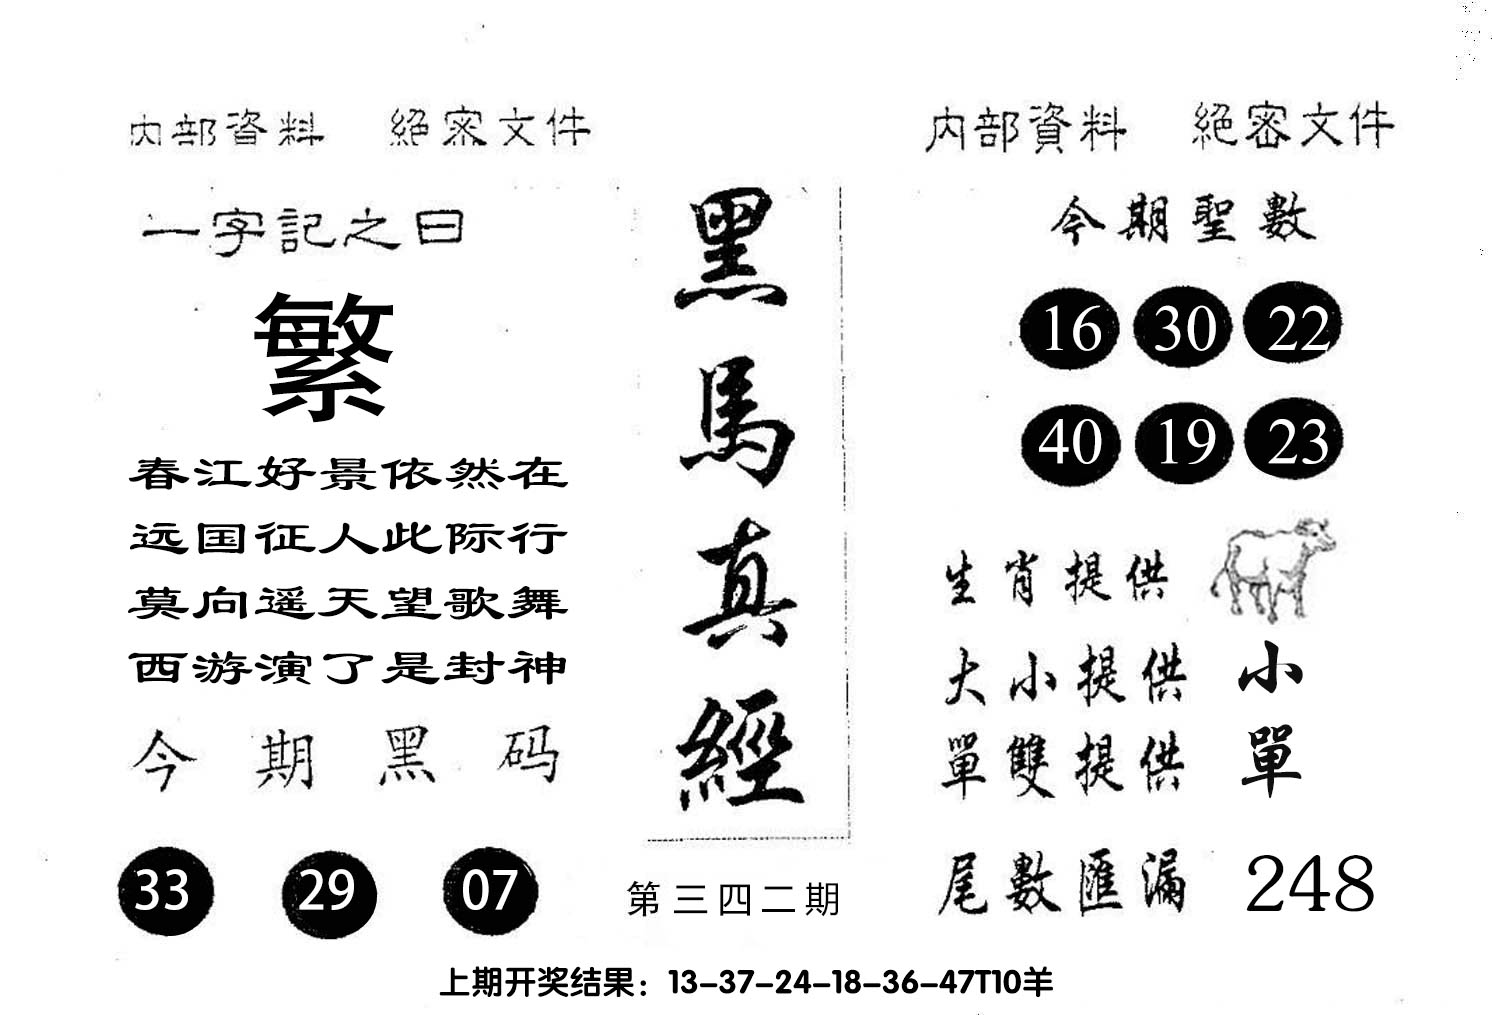 内部資料 絕密文件
一字記之曰
繁
春江好景依然在
远国征人此际行
莫向遥天望歌舞
西游演了是封神
今期黑码
33 29 07
黑馬真經
第三四二期
内部資料 絕密文件
今期聖數
16 30 22
40 19 23
生肖提供
大小提供 小
單雙提供 單
尾數匯漏 248
上期开奖结果：13-37-24-18-36-47T10羊